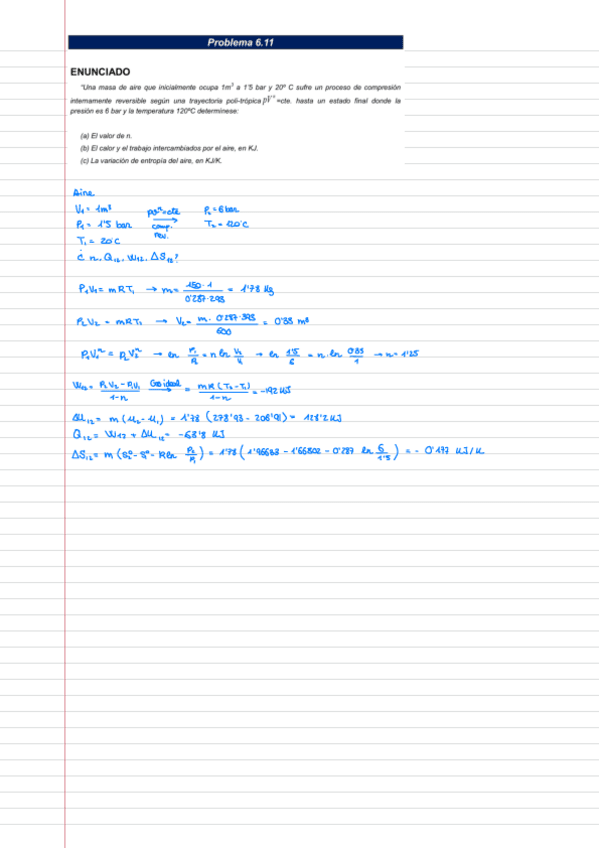 Problema 6.11
ENUNCIADO
"Una masa de aire que inicialmente ocupa 1m³ a 1'5 bar y 20º C sufre un proceso de compresión
internamente reversible según una trayectoria poli-trópica pVⁿ =cte. hasta un estado final donde la
presión es 6 bar y la temperatura 120ºC determínese:
(a) El valor de n.
(b) El calor y el trabajo intercambiados por el aire, en KJ.
(c) La variación de entropía del aire, en KJ/K.
Aire
V₁ = 1m³ pvⁿ=cte P₂ = 6 bar
P₁ = 1'5 bar comp. T₂ = 120°C
T₁ = 20°C rev.
¿ n, Q₁₂, W₁₂, ΔS₁₂?
P₁V₁ = mRT₁ → m = 150·1 / 0'287·293 = 1'78 Kg
P₂V₂ = mRT₁ → V₂ = m·0'287·393 / 600 = 0'33 m³
P₁V₁ⁿ = P₂V₂ⁿ → ln P₁/P₂ = n ln V₂/V₁ → ln 1'5/6 = n·ln 0'33/1 → n = 1'25
W₁₂ = P₂V₂ - P₁V₁ / 1-n Gas ideal → = mR(T₂-T₁) / 1-n = -192 KJ
ΔU₁₂ = m(u₂-u₁) = 1'78 (278'93 - 206'91) = 128'2 KJ
Q₁₂ = W₁₂ + ΔU₁₂ = -63'8 KJ
ΔS₁₂ = m(S₂° - S₁° - R ln P₂/P₁) = 1'78 (1'96633 - 1'66802 - 0'287 ln 6/1'5) = - 0'177 KJ/K